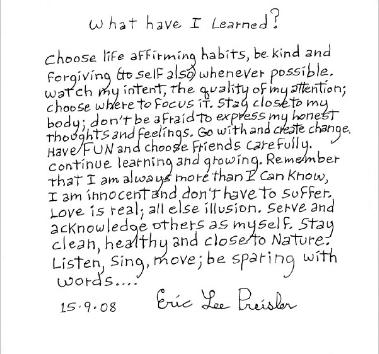 What have I Learned?
Choose life affirming habits, be kind and
forgiving (to self also) whenever possible.
Watch my intent, the quality of my attention;
choose where to focus it. Stay close to my
body; don't be afraid to express my honest
thoughts and feelings. Go with and create change.
Have FUN and choose friends carefully.
Continue learning and growing. Remember
that I am always more than I can know,
I am innocent and don't have to suffer.
Love is real; all else illusion. Serve and
acknowledge others as myself. Stay
clean, healthy and close to Nature.
Listen, Sing, move; be sparing with
words....
15.9.08 Eric Lee Preisler